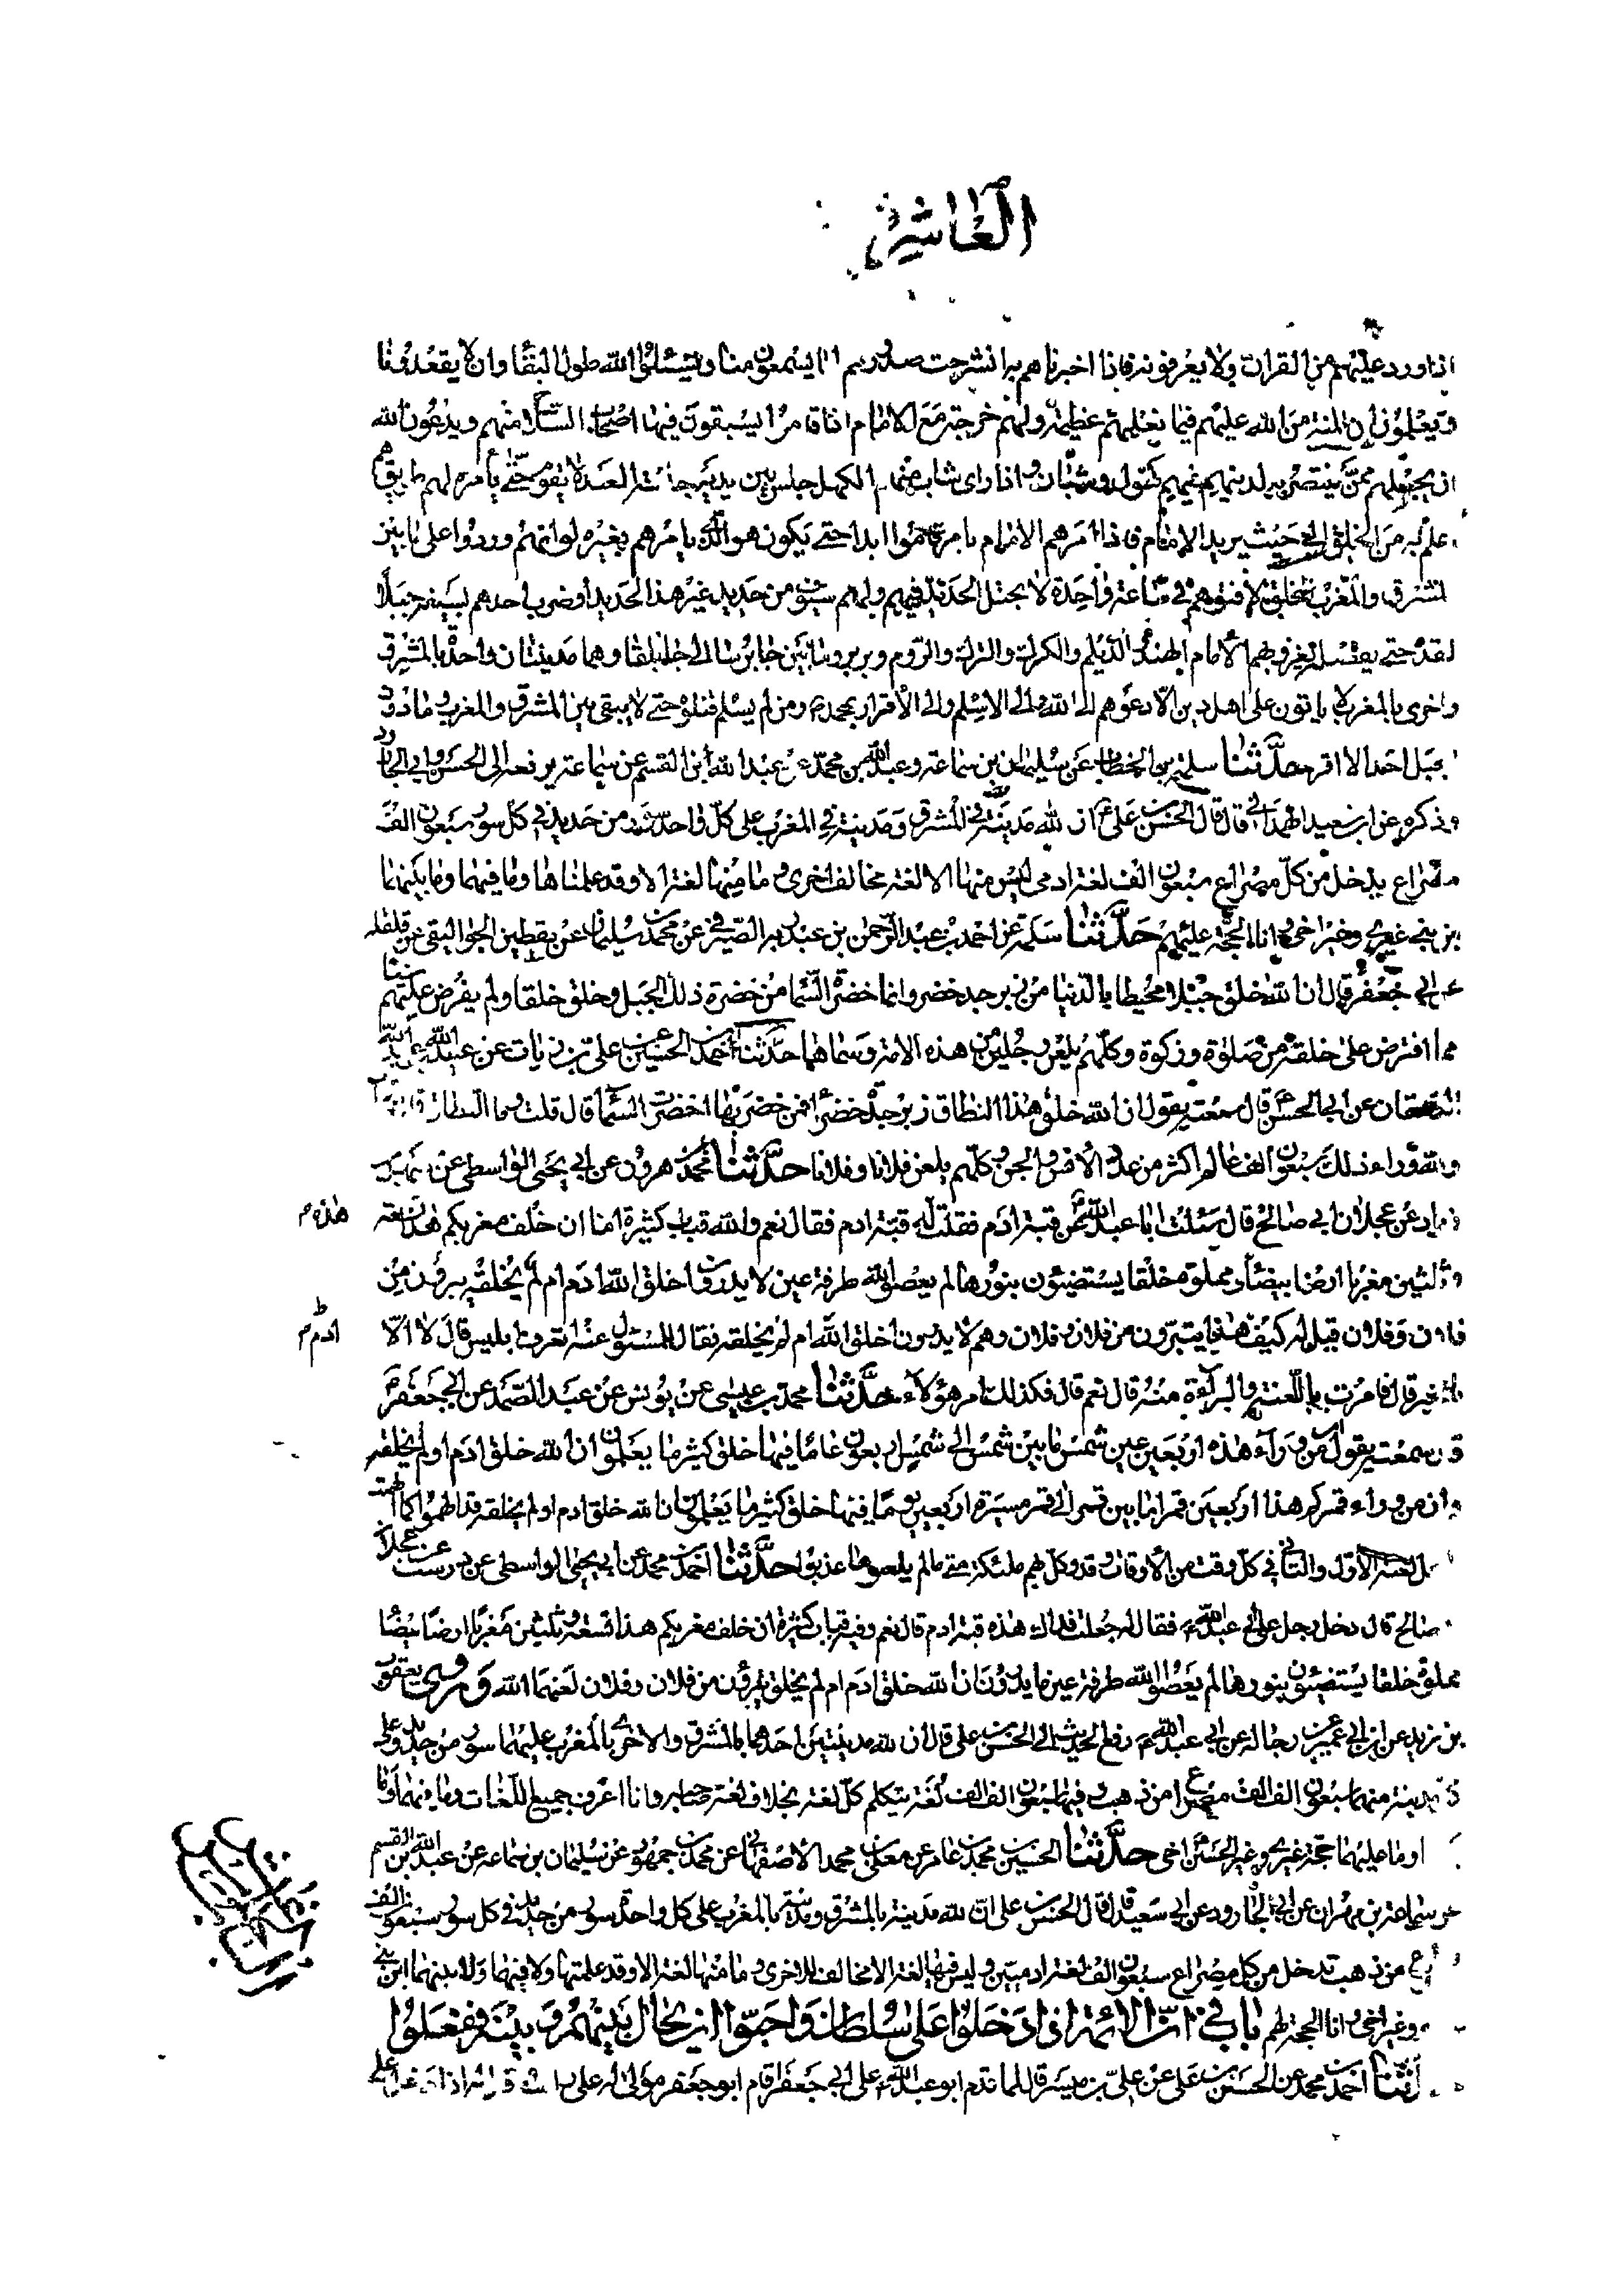 العاشر
اذا ورد عليهم من القران ولا يعرفونه فاذا اخبرناهم به انشرحت صدورهم لما يسمعون منا ويسئلوا الله طول البقا وان لا يفقدونا
ويعلمون ان المنة من الله عليهم فيما نعلمهم عظيمة ولهم خرجة مع الامام اذا قاموا يسبقون فيها اصحاب السلاح منهم ويدعون الله
ان يجعلهم ممن ينتصر به لدينه فيهم كهول وشبان واذا راى شاب منهم الكهل جلس بين يديه جلسة العبد لا يقوم حتى يامره لهم طريق هم
اعلم به من الخلق الى حيث يريد الامام فاذا امرهم الامام بامر قاموا ابدا حتى يكون هو الذي يامرهم بغيره لو انهم وردوا على ما بين
المشرق والمغرب من الخلق لافنوهم في ساعة واحدة لا يختل الحديد فيهم ولهم سيوف من حديد غير هذا الحديد لو ضرب احدهم بسيفه جبلا
لقده حتى يفصله يغزو بهم الامام الهند والديلم والكرك والترك والروم وبربر وما بين جابرسا الى جابلقا وهما مدينتان واحدة بالمشرق
واخرى بالمغرب لا ياتون على اهل دين الا دعوهم الى الله والى الاسلم والى الاقرار بمحمد ومن لم يسلم قتلوه حتى لا يبقى بين المشرق والمغرب وما دون
الجبل احد الا اقر حدثنا سلمة بن الخطاب عن سليمان بن سماعة وعبد الله بن محمد عن عبد الله بن القسم عن سماعة يرفعه الى الحسن وابي الجارود
وذكره عن ابي سعيد الهمداني قال قال الحسن بن علي ان لله مدينة في المشرق ومدينة في المغرب على كل واحدة سور من حديد في كل سور سبعون الف
مصراع يدخل من كل مصراع سبعون الف لغة ادمي ليس منها الا لغة مخالف اخرى وما منها لغة الا وقد علمناها وما فيهما وما بينهما
ابن نبي غيري وغير اخي وانا الحجة عليهم حدثنا سلمة عن احمد بن عبد الرحمن بن عبد ربه الصيرفي عن محمد بن سليمان عن يقطين الجواليقي عن قلقلة
عن ابي جعفر قال ان الله خلق جبلا محيطا بالدنيا من زبرجد خضر وانما خضرة السما من خضرة ذلك الجبل وخلق خلقا ولم يفرض عليهم شيئا
مما افترض على خلقه من صلوة وزكوة وكلهم يلعن رجلين من هذه الامة وسماهما حدثنا احمد بن الحسين عن علي بن زيات عن عبيد الله بن عبد الله
الدهقان عن ابي الحسن قال سمعته يقول ان الله خلق هذا النطاق زبرجدة خضرا فمن خضرتها اخضرت السما قال قلت وما النطاق قال الحجاب
ولله وراء ذلك سبعون الف عالم اكثر من عدد الانس والجن وكلهم يلعن فلانا وفلانا حدثنا محمد بن هرون عن ابي يحيى الواسطي عن سهل بن
زياد عن عجلان ابي صالح قال سئلت ابا عبد الله عن قبة ادم فقلت له قبة ادم فقال نعم ولله قباب كثيرة اما ان خلف مغربكم هذا تسعة
هذه م
وثلثين مغربا ارضا بيضاء مملوة خلقا يستضيئون بنورها لم يعصوا الله طرفة عين لا يدرون اخلق الله ادم ام لم يخلقه يبرؤن من
فلان وفلان قيل له كيف هذا يتبرون من فلان وفلان وهم لا يدرون اخلق الله ام لم يخلقه فقال للمسئول عنه اتعرف ابليس قال لا الا
ادم م
بالخبر قال فامرت باللعنة والبرائة منه قال نعم قال فكذلك امر هؤلاء حدثنا محمد بن عيسى عن يونس عن عبد الصمد عن ابي جعفر
قال سمعته يقول ان من وراء هذه اربعين عين شمس ما بين شمس الى شمس اربعون عاما فيها خلق كثير ما يعلمون ان الله خلق ادم او لم يخلقه
وان من وراء قمركم هذا اربعين قمرا ما بين قمر الى قمر مسيرة اربعين يوما فيها خلق كثير ما يعلمون ان الله خلق ادم او لم يخلقه قد الهموا كما الهمت
النحل لعنة الاول والثاني في كل وقت من الاوقات وقد وكل بهم ملئكة متى ما لم يلعنوهما عذبوا حدثنا احمد بن محمد عن ابي يحيى الواسطي عن درست عن عجلان
صالح قال دخل رجل على ابي عبد الله فقال له جعلت فداك هذه قبة ادم قال نعم وفيه قباب كثيرة ان خلف مغربكم هذا تسعة وثلثين مغربا ارضا بيضا
مملوة خلقا يستضيئون بنورها لم يعصوا الله طرفة عين ما يدرون ان الله خلق ادم ام لم يخلق يبرؤن من فلان وفلان لعنهما الله وروى يعقوب
بن يزيد عن ابن ابي عمير عن رجاله عن ابي عبد الله رفع الحديث الى الحسن بن علي قال ان لله مدينتين احدهما بالمشرق والاخرى بالمغرب عليهما سور من حديد وعلى
كل مدينة منهما سبعون الف الف مصراع من ذهب وفيها سبعون الف الف لغة يتكلم كل لغة بخلاف لغة صاحبه وانا اعرف جميع اللغات وما فيهما وما
وما عليهما حجة غيري وغير الحسين اخي حدثنا الحسين بن محمد بن عامر عن معلى بن محمد الاصفهاني عن محمد بن جمهور عن سليمان بن سماعة عن عبد الله بن القسم
عن سماعة بن مهران عن ابي الجارود عن ابي سعيد قال قال الحسن بن علي ان لله مدينة بالمشرق ومدينة بالمغرب على كل واحدة سور من حديد في كل سور سبعون الف
مصراع من ذهب تدخل من كل مصراع سبعون الف لغة ادميين وليس فيها لغة الا مخالف للاخرى وما منها لغة الا وقد علمتها ولا فيهما ولا بينهما ابن نبي
غيري وغير اخي وانا الحجة لهم باب في ان الائمة اذا دخلوا على سلطان واحبوا ان يحال بينهم وبينه ففعلوا
حدثنا احمد بن محمد عن الحسين بن علي عن علي بن ميسر قال لما قدم ابو عبد الله على ابي جعفر اقام ابو جعفر مولى له على راسه